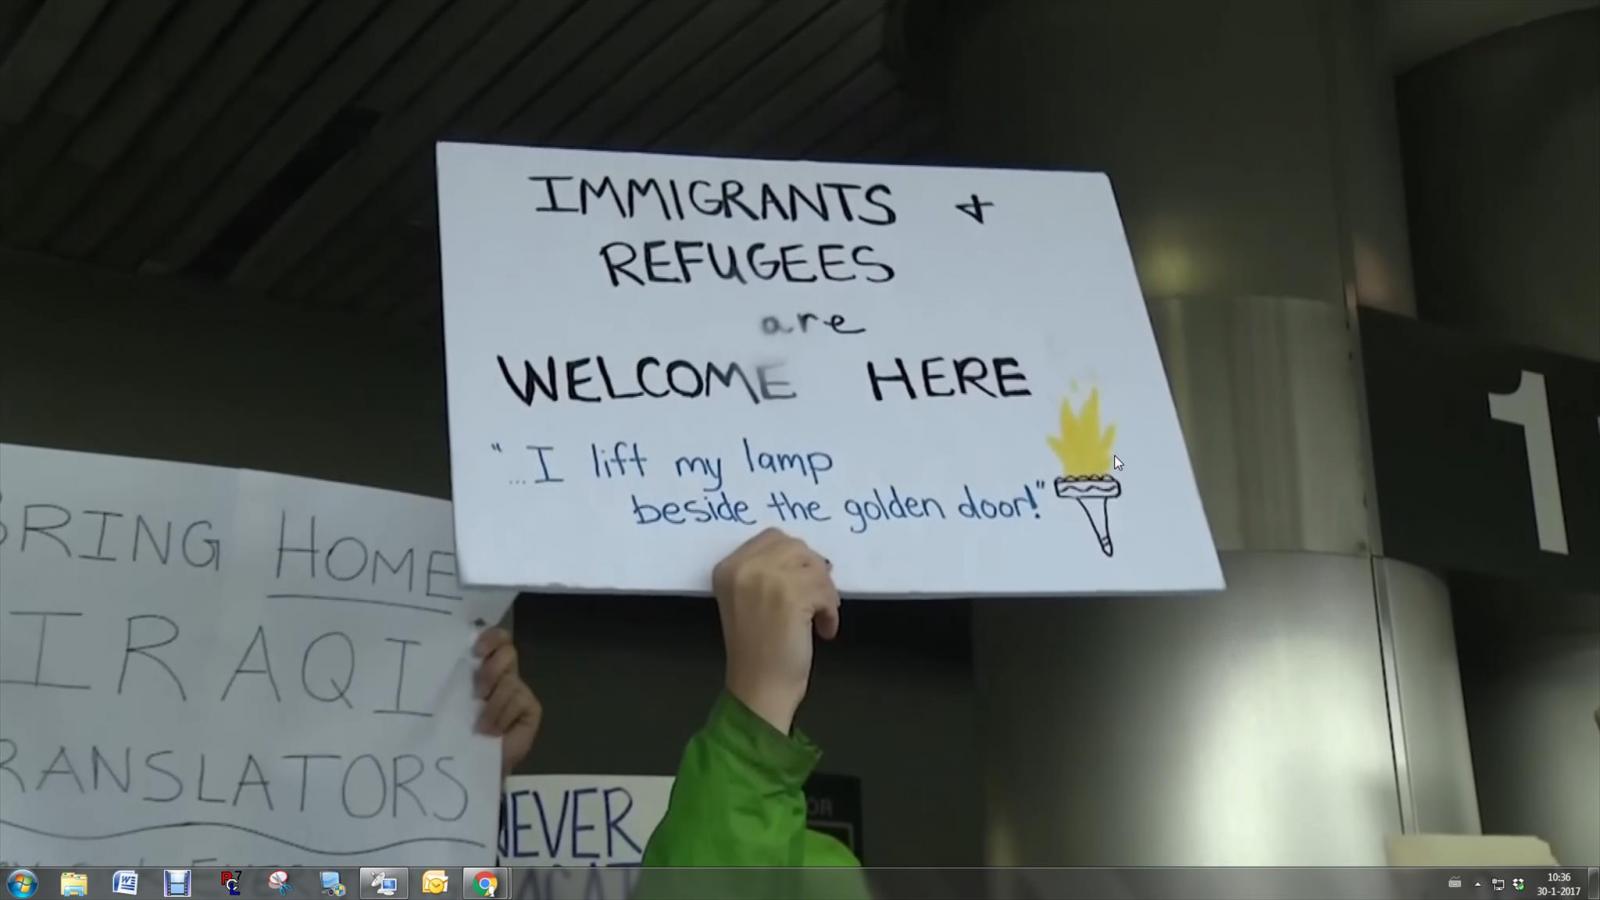 IMMIGRANTS +
REFUGEES
are
WELCOME HERE
"...I lift my lamp
beside the golden door!"
BRING HOME
IRAQI
TRANSLATORS
NEVER
1
10:36
30-1-2017